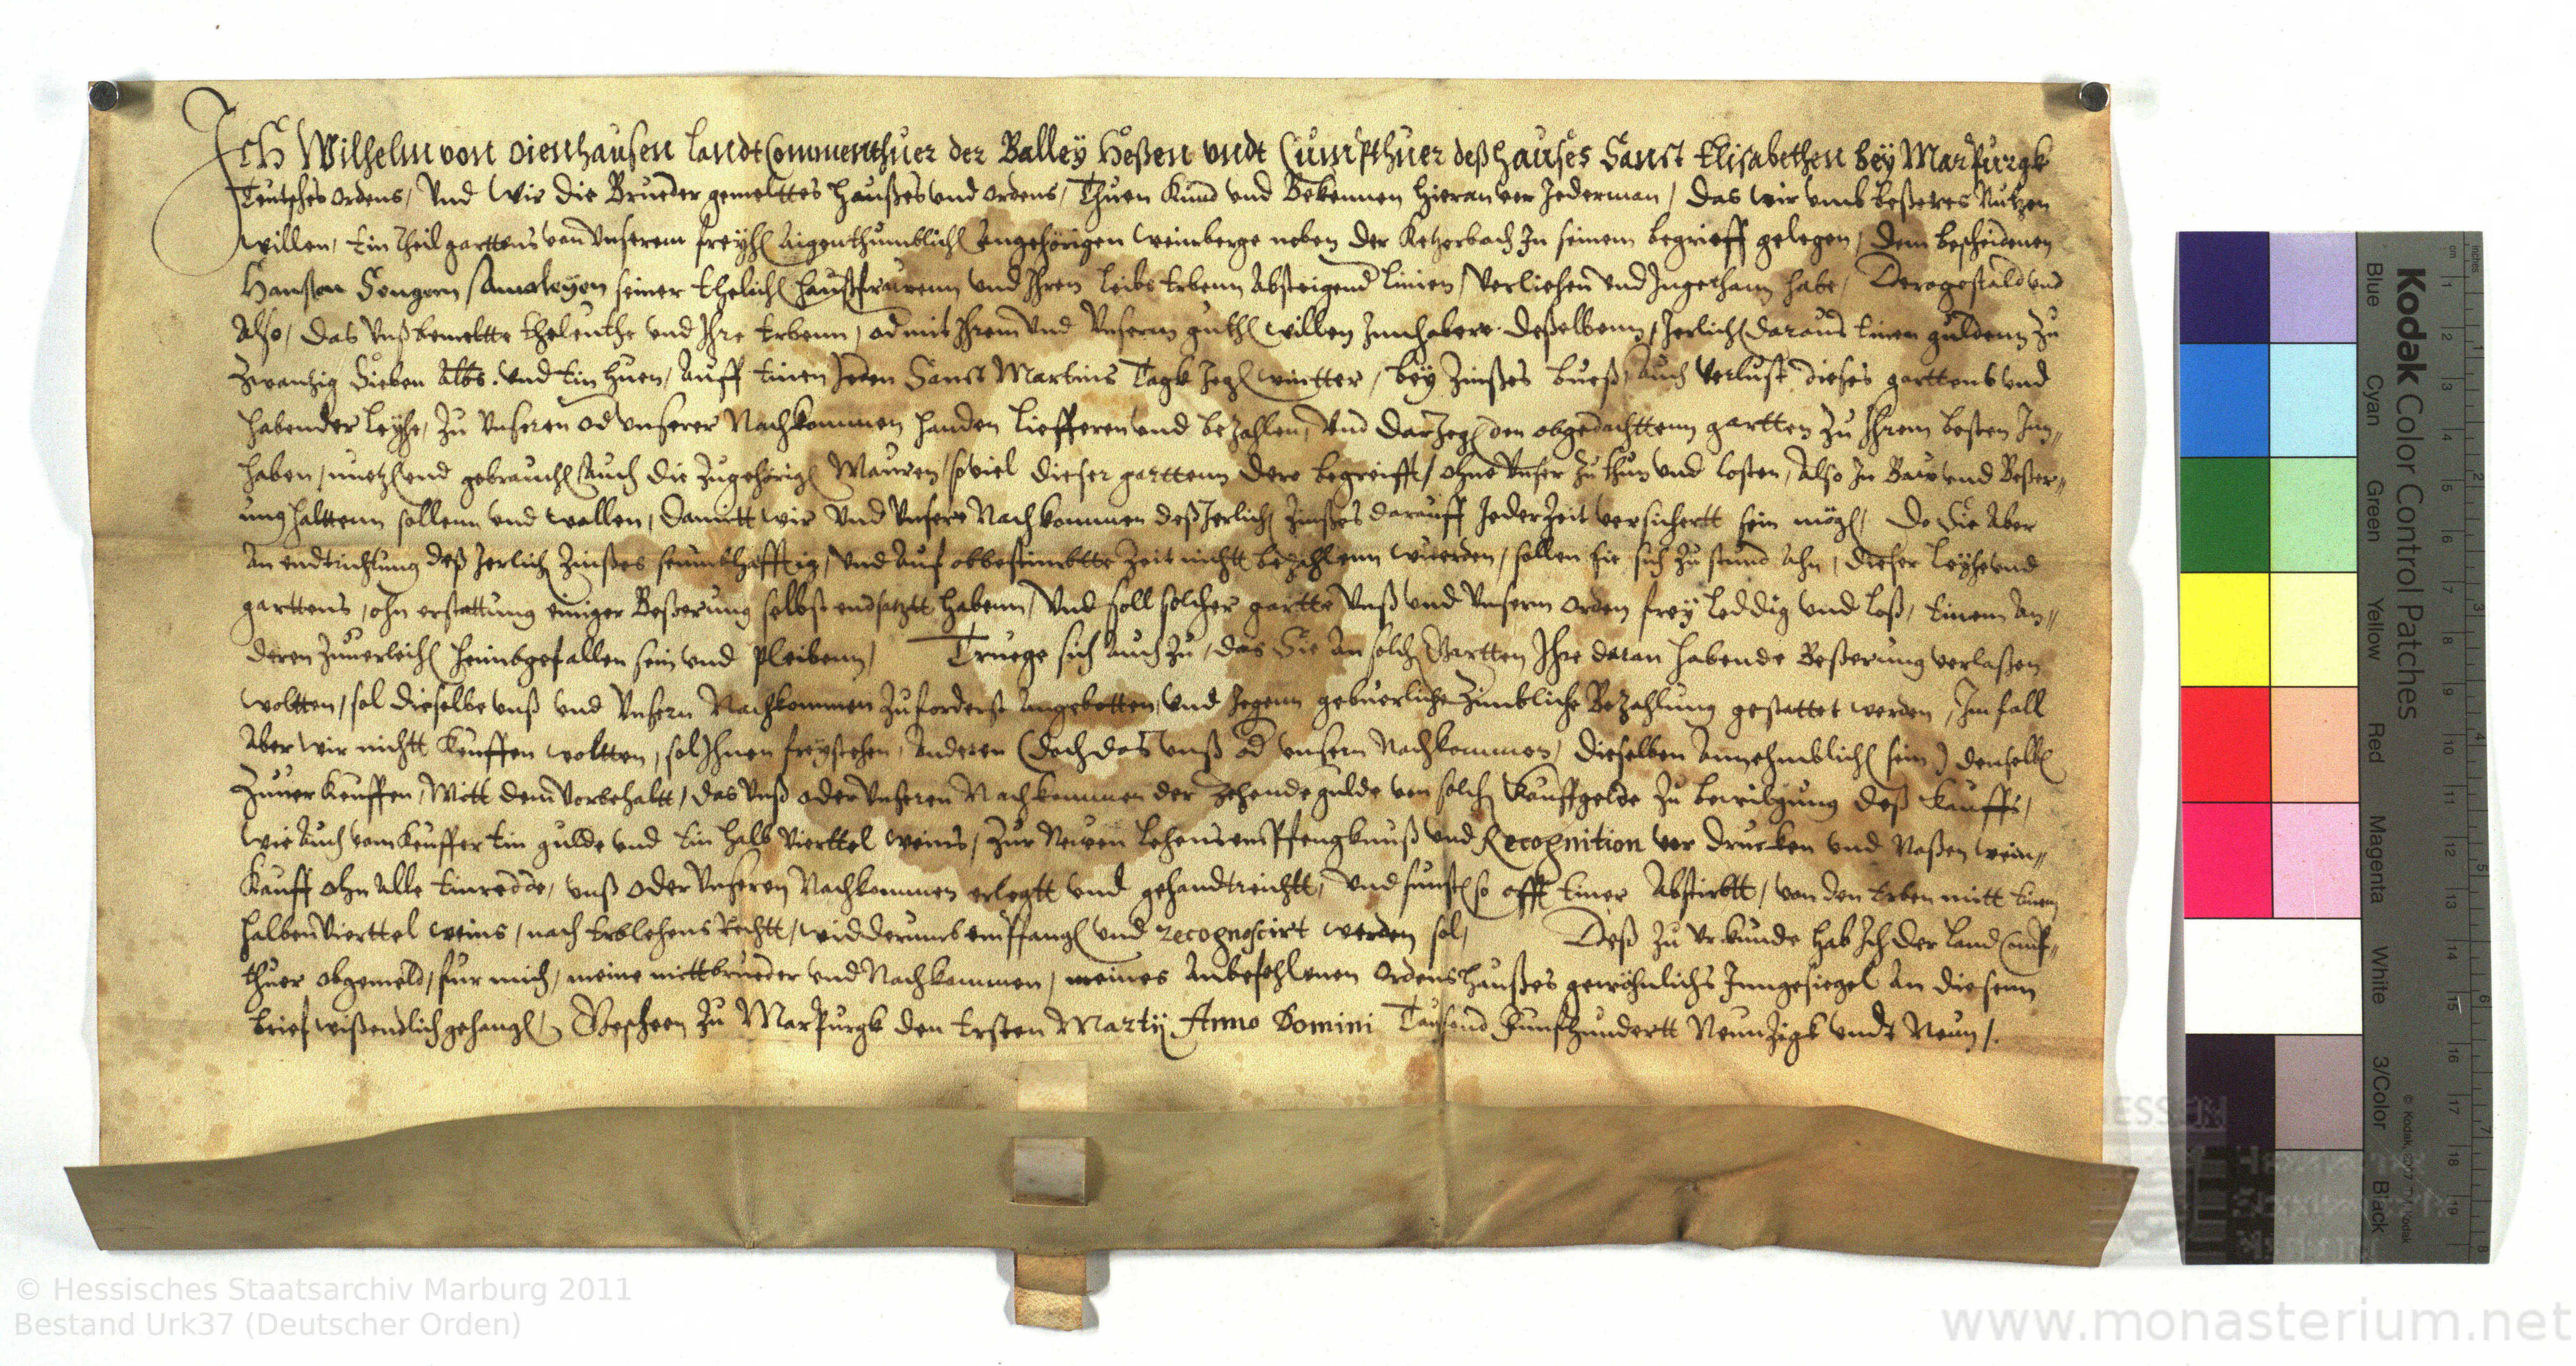 Ich Wilhelm von Oienhausen Landt Commenthuer der Balley Heßen undt Cumpthuer deß hauses Sanct Elisabethen bey Marpurgk
Teutsches Ordens, Und Wir die Brueder gemelttes Haußes und Ordens, Thuen Kund und Bekennen hieran vor Jederman, das wir umb beßeres Nutzen
willen, Ein Theil garttens von Unserem freyh Aigenthumblich Angehörigen weinberge neben der Ketzerbach In seinem begrieff gelegen, dem bescheidenen
Hanßen Sengern Amaleyen seiner Ehelich haußfrauwenn und Ihren Leibs Erbenn Absteigend Linien, verliehen und Ingethann habe, Derogestald und
Also, das Unß bemeltte Eheleuthe und Ihre Erbenn, od mit Ihrem und Unserm guth willen Innhabere deßelbenn, Jerlich daraus Einen guldenn zu
Zwanzig Sieben Albs. und Ein huen, Auff Einen Jeden Sanct Martins Tagk Jegen wintter, bey Zinßes bueß, Auch Verlust dieses garttens und
habender Leyhe, zu Unseren od Unserer Nachkommen handen Liefferen und bezahlen, Und dar Jegen den obgedachttenn gartten zu Ihrem besten Inn„
haben, nuetzen und gebrauchen, Auch die zugehörige Mauren, soviel dieser garttenn dero begreifft, ohne Unser zuthun und Costen, Also In Baw und Beßer„
ung halttenn sollenn und wollen, damitt wir und Unsere Nachkommen deß Jerlich Zinßes darauff Jeder Zeit versichertt sein mögen, Do Sie Aber
An endtrichtung deß Jerlich Zinßes seumbhafftig, Und Auf obbestimbtte Zeit nichtt bezahlenn wuerden, sollen sie sich zu stund Ahn, dieser Leyhe und
garttens, ohn erstattung einiger Beßerung selbst endsatztt habenn, Und soll solcher gartte Unß und Unserm Orden frey Leddig und Loß, Einem An„
deren zuverleihen heimbgefallen sein und pleibenn, Truege sich Auch zu, das Sie An solch Gartten Ihre daran habende Beßerung verlaßen
woltten, sol dieselbe unß und Unsern Nachkommen zuforderst Angebotten, und Jegenn gebuerliche Zimbliche Bezahlung gestattet werden, Im fall
Aber wir nichtt Keuffen woltten, sol Ihnen freystehen, Anderen (doch das unß od unsern Nachkommen, dieselben Annehmblich sein) denselben
zuverkeuffen, Mitt dem Vorbehaltt, das Unß oder Unseren Nachkommen der Zehende gulde von solch Kauffgelde zu bewilgung deß Kauffs,
wie Auch vom Keuffer Ein gulde und Ein halb Vierttel weins, Zur Newen Lehens empfengknuß und Recognition vor drucken und Naßen wein„
kauff ohn Alle Einredde, unß oder Unseren Nachkommen erlegtt und gehandtreichtt, Und sunsten so offt Einer Abstirbtt, von den Erben mitt Einem
halben Vierttel weins, nach Erblehens Rechtt, widderumb empfangen und recognoscirt werden sol, Deß zu Urkunde hab Ich der Land Comp„
thuer obgemeld, fur mich, meine mittbrueder und Nachkommen, meines Anbefohlenen Ordens Haußes gewöhnlichs Inngesiegel An diesenn
brief wißendlich gehangen, Gescheen zu Marpurgk den Ersten Martij Anno Domini Tausend Funfhundertt Neunzigk undt Neun/.
Kodak Color Control Patches
Blue Cyan Green Yellow Red Magenta White 3/Color Black
© Hessisches Staatsarchiv Marburg 2011
Bestand Urk37 (Deutscher Orden)
www.monasterium.net